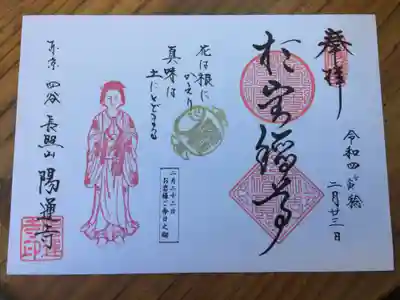 奉拝
令和四
二月廿三日
於岩稲荷
花は根に
かえり
真味は
土にとどまる
二月二十二日
お岩様ご命日之砌
東京 四谷 長照山 陽運寺